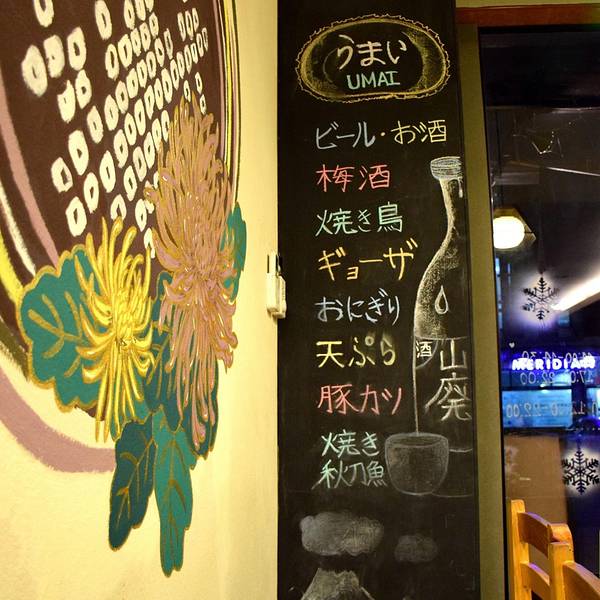 うまい
UMAI
ビール・お酒
梅酒
焼き鳥
ギョーザ
おにぎり
天ぷら
豚カツ
焼き
秋刀魚
酒
山廃
MERIDIANO